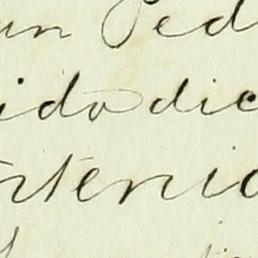 un Ped
ido dic
rtenic